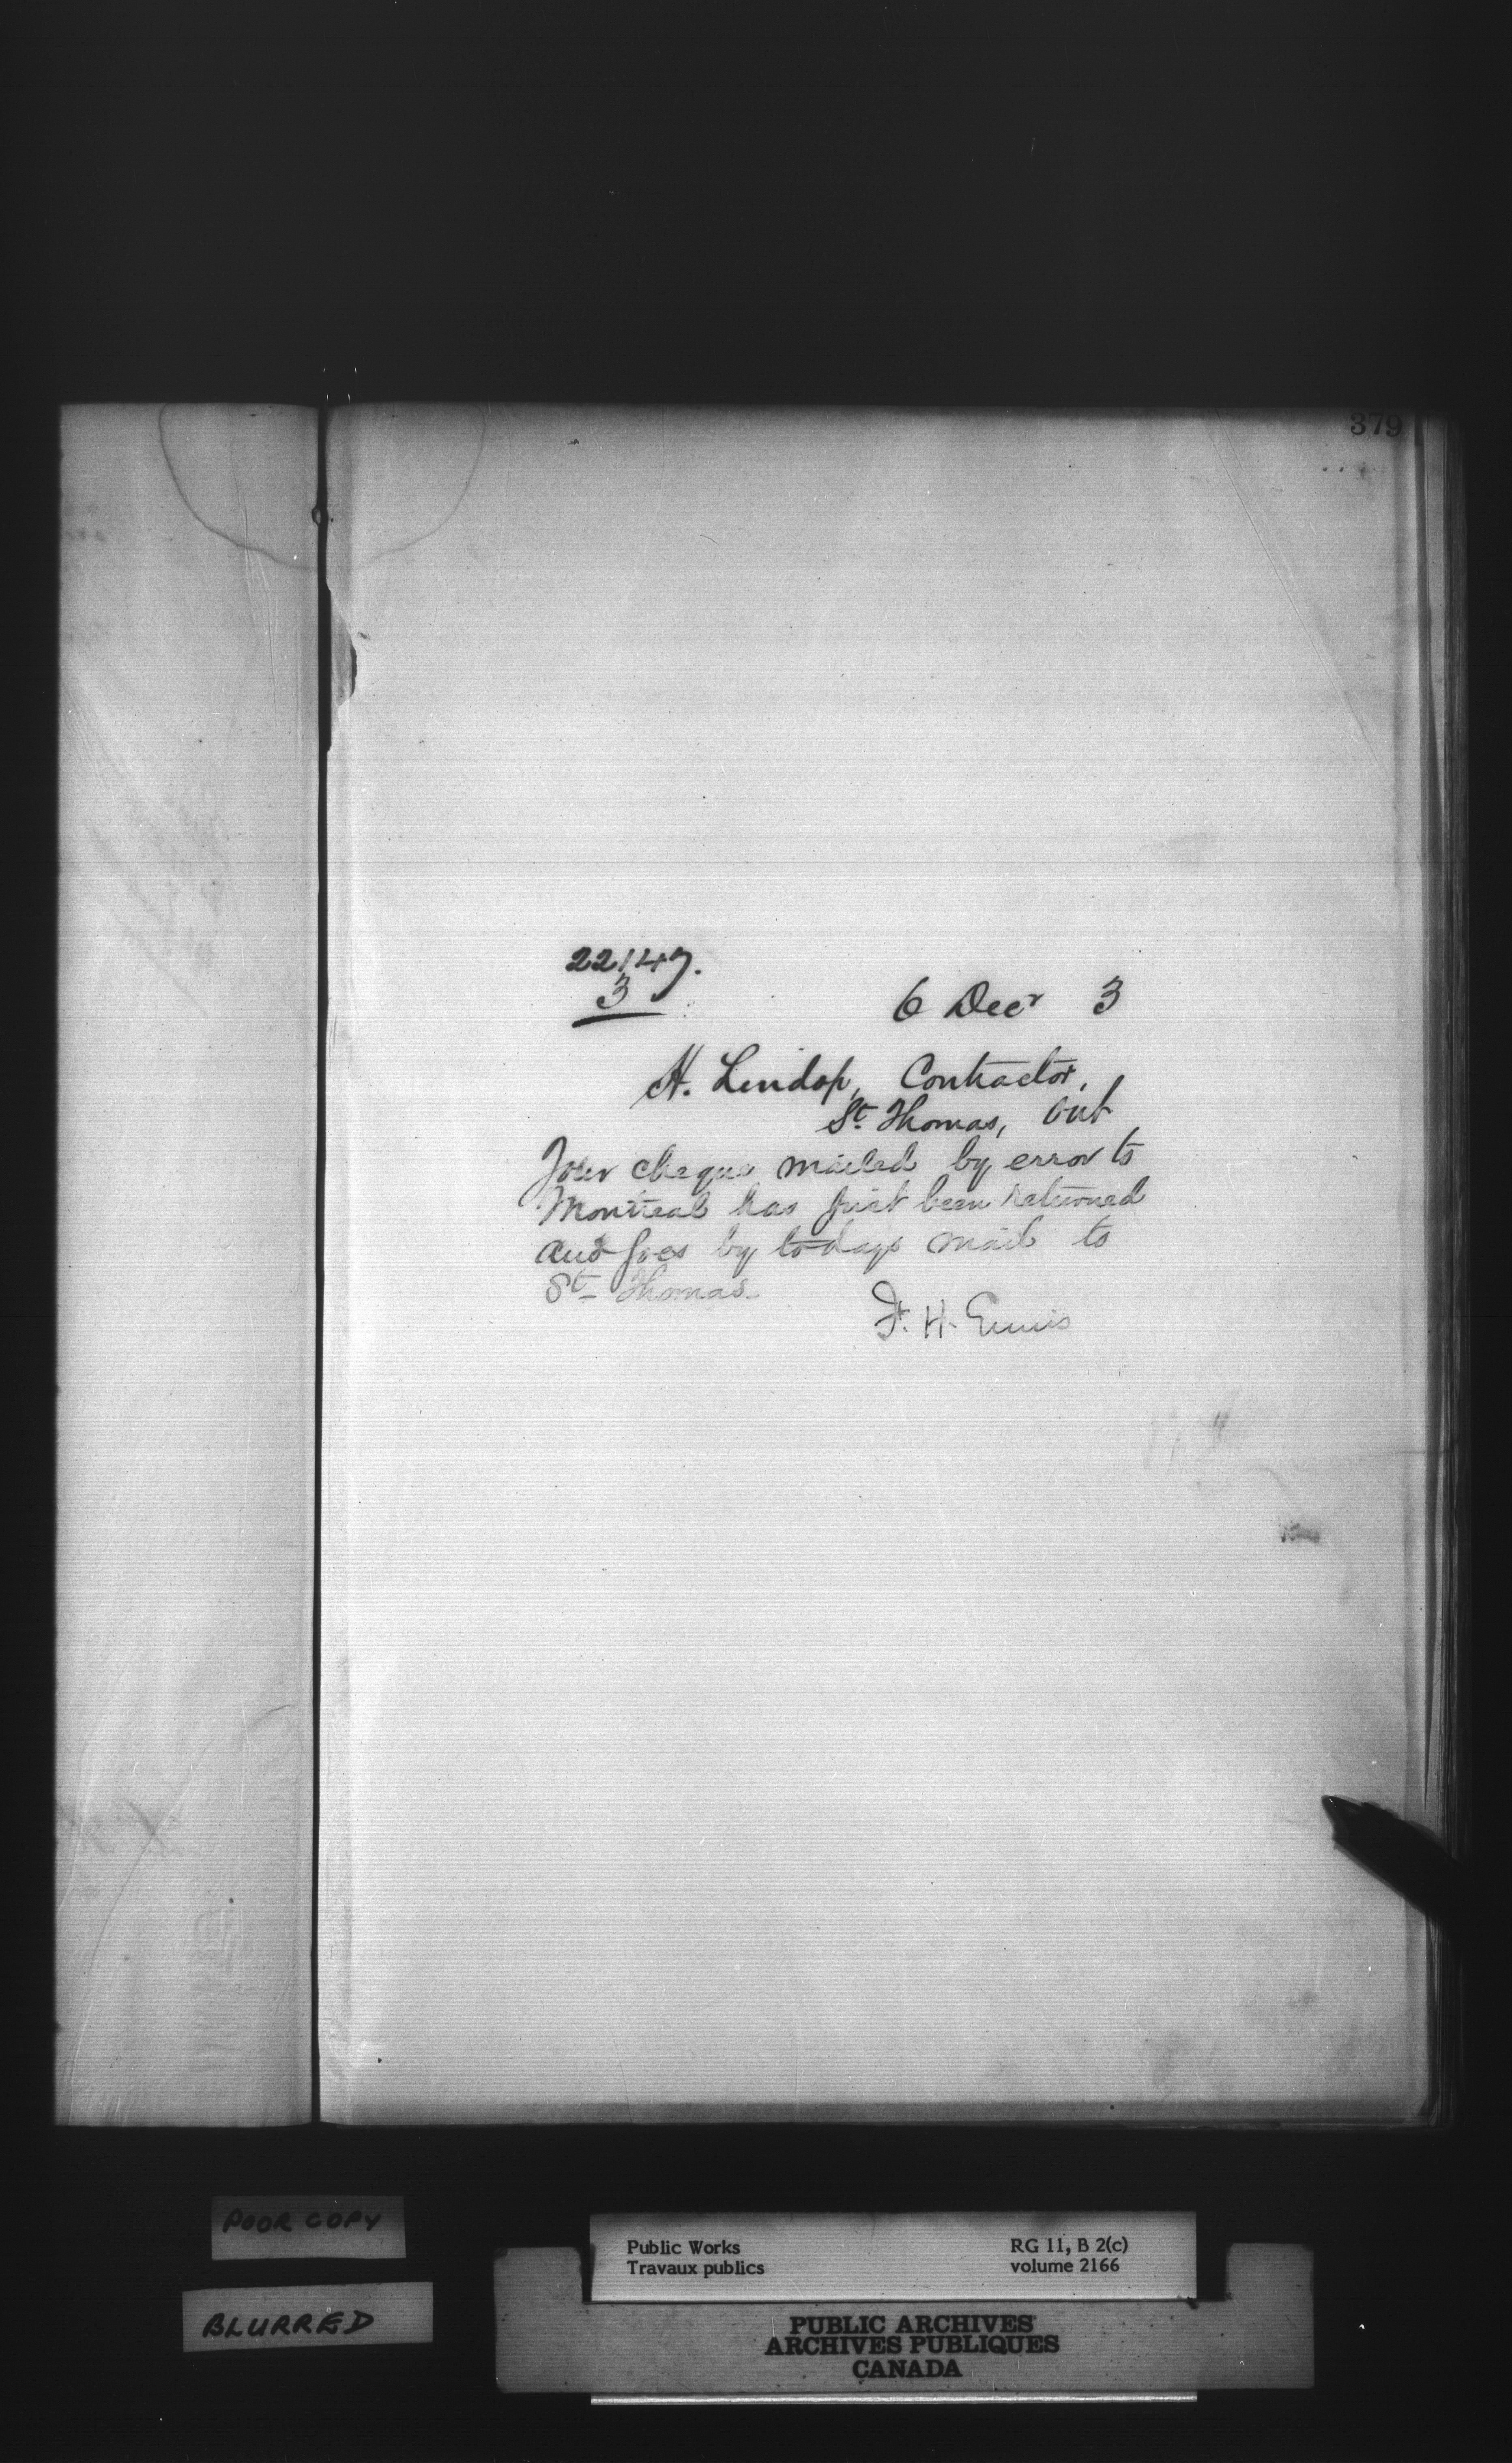 379
22147.
3
6 Decr 3
H. Lindop, Contractor,
St. Thomas, Ont
Your cheque mailed by error to
Montreal has just been returned
and goes by to-days mail to
St. Thomas.
F. H. Ennis
POOR COPY
BLURRED
Public Works
Travaux publics
RG 11, B 2(c)
volume 2166
PUBLIC ARCHIVES
ARCHIVES PUBLIQUES
CANADA